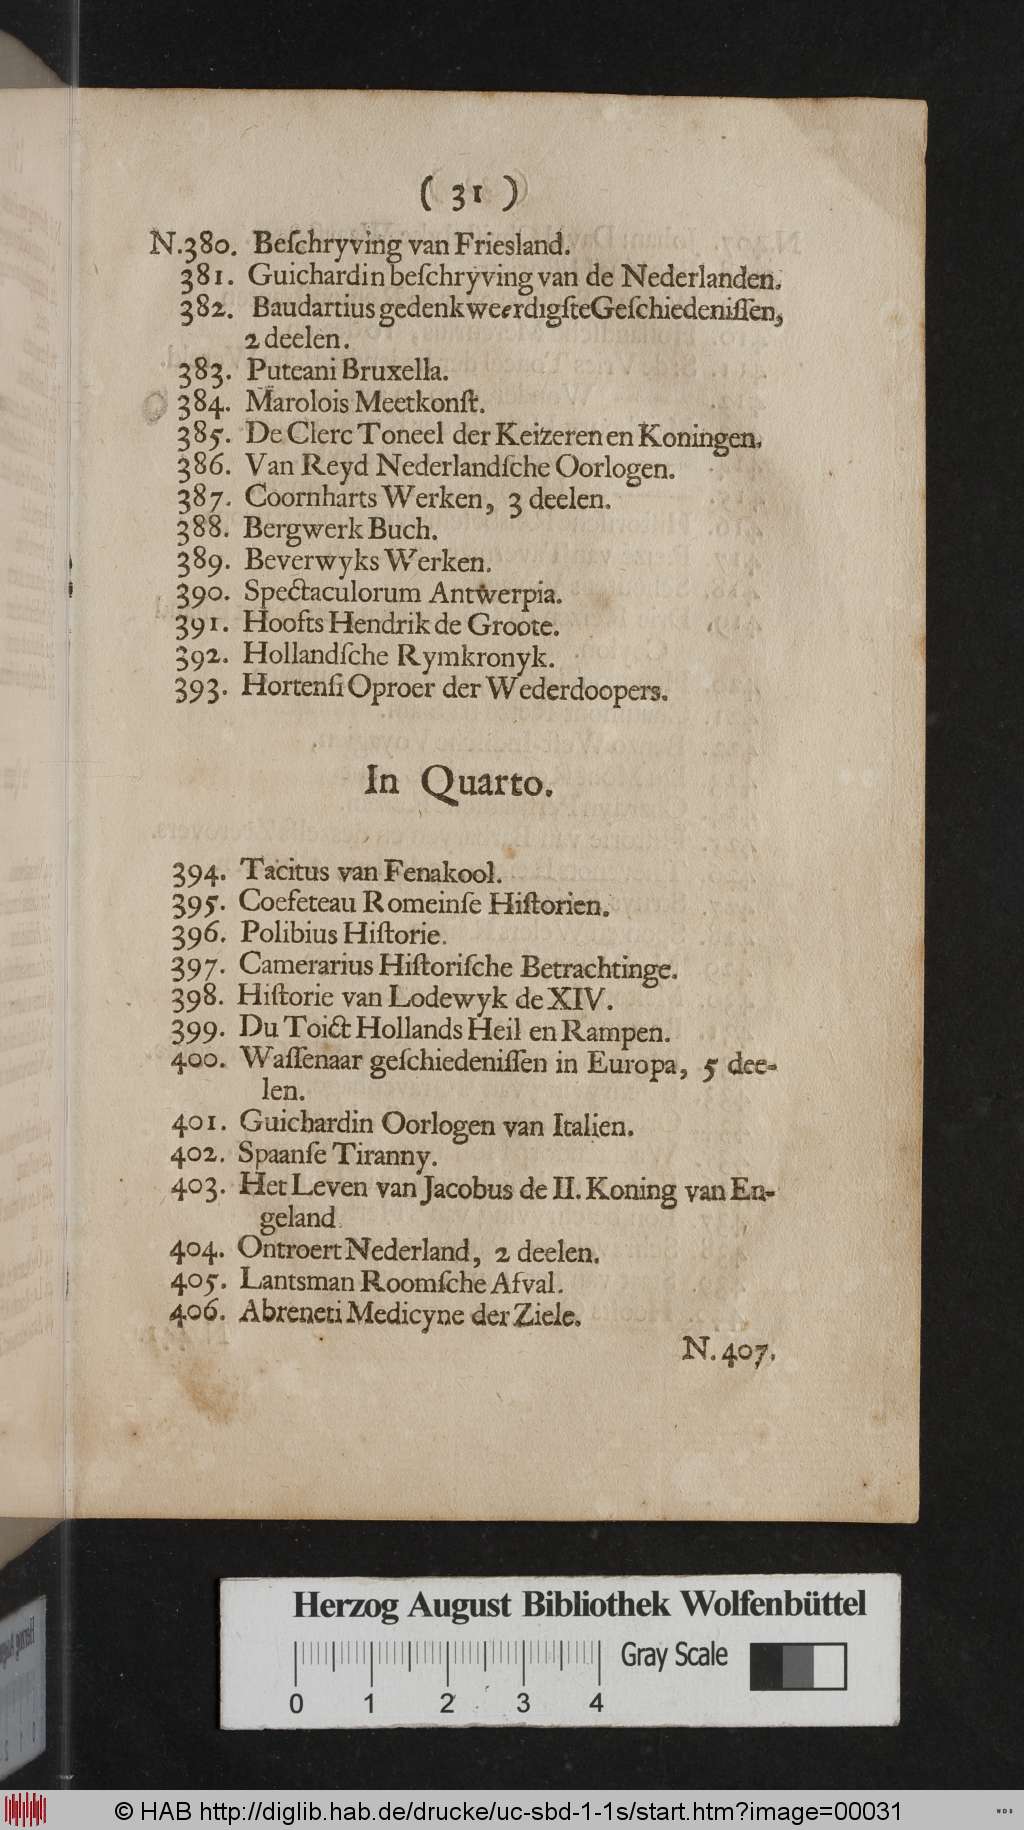 ( 31 )
N.380. Beſchryving van Friesland.
381. Guichardin beſchryving van de Nederlanden.
382. Baudartius gedenkweerdigſte Geſchiedeniſſen,
2 deelen.
383. Puteani Bruxella.
384. Marolois Meetkonſt.
385. De Clerc Toneel der Keizeren en Koningen.
386. Van Reyd Nederlandſche Oorlogen.
387. Coornharts Werken, 3 deelen.
388. Bergwerk Buch.
389. Beverwyks Werken.
390. Spectaculorum Antwerpia.
391. Hoofts Hendrik de Groote.
392. Hollandſche Rymkronyk.
393. Hortenſi Oproer der Wederdoopers.
In Quarto.
394. Tacitus van Fenakool.
395. Coefeteau Romeinſe Hiſtorien.
396. Polibius Hiſtorie.
397. Camerarius Hiſtoriſche Betrachtinge.
398. Hiſtorie van Lodewyk de XIV.
399. Du Toict Hollands Heil en Rampen.
400. Waſſenaar geſchiedeniſſen in Europa, 5 dee-
len.
401. Guichardin Oorlogen van Italien.
402. Spaanſe Tiranny.
403. Het Leven van Jacobus de II. Koning van En-
geland
404. Ontroert Nederland, 2 deelen.
405. Lantsman Roomſche Afval.
406. Abreneti Medicyne der Ziele.
N. 407.
Herzog August Bibliothek Wolfenbüttel
Gray Scale
0 1 2 3 4
© HAB http://diglib.hab.de/drucke/uc-sbd-1-1s/start.htm?image=00031